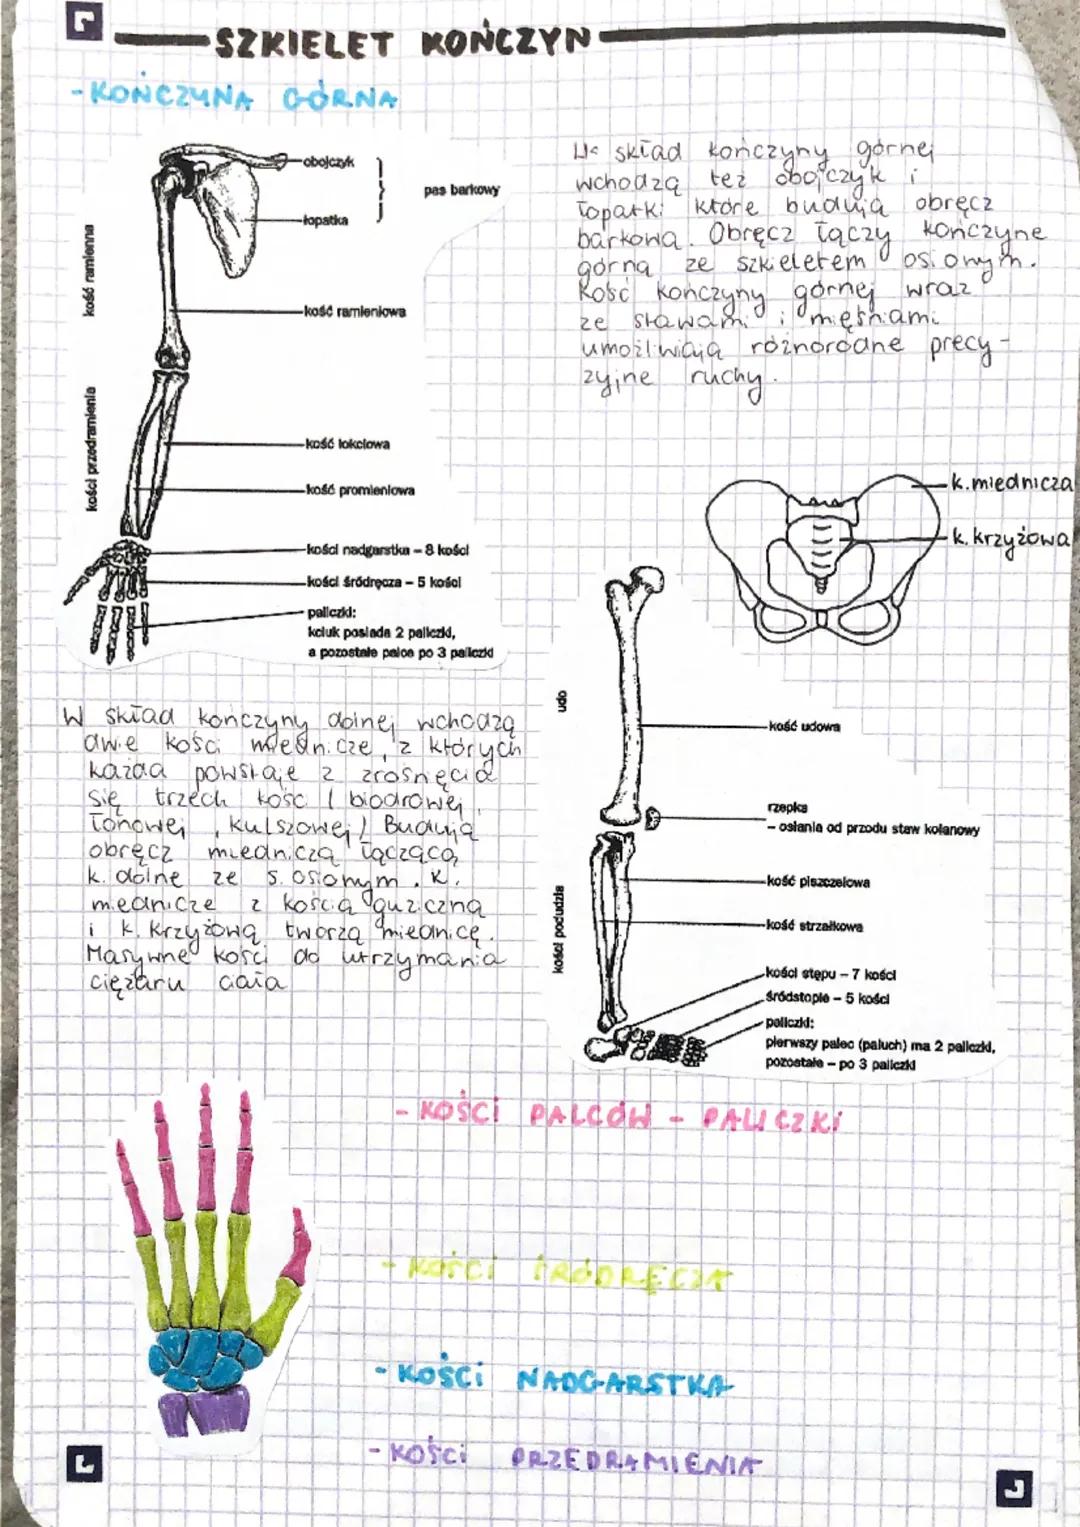 SZKIELET KOŃCZYN
-KOŃCZYNA GÓRNA
obojczyk
łopatka
pas barkowy
kość ramienna
kość ramieniowa
kości przedramienia
kość łokciowa
kość promieniowa
kości nadgarstka – 8 kości
kości śródręcza – 5 kości
paliczki:
kciuk posiada 2 paliczki,
a pozostałe palce po 3 paliczki
W skład kończyny górnej
wchodzą też obojczyk i
łopatki które budują obręcz
barkową. Obręcz łączy kończyne
górną ze szkieletem osiowym.
Kość kończyny górnej wraz
ze stawami i mięśniami
umożliwiają różnorodne precy-
zyjne ruchy.
k.miednicza
k.krzyżowa
W skład kończyny dolnej wchodzą
dwie kości miednicze, z których
każda powstaje z zrośnięcia
się trzech kości ( biodrowej,
łonowej, kulszowej) Budują
obręcz miedniczą łączącą
k. dolne ze s. osiowym. K.
miednicze z kością guziczną
i k. krzyżową tworzą miednicę.
Masywne kości do utrzymania
ciężaru ciała
udo
kość udowa
rzepka
– osłania od przodu staw kolanowy
kości podudzia
kość piszczelowa
kość strzałkowa
kości stępu – 7 kości
śródstopie – 5 kości
paliczki:
pierwszy palec (paluch) ma 2 paliczki,
pozostałe – po 3 paliczki
- KOŚCI PALCÓW - PALICZKI
- KOŚCI ŚRÓDRĘCZA
- KOŚCI NADGARSTKA
- KOŚCI PRZEDRAMIENIA